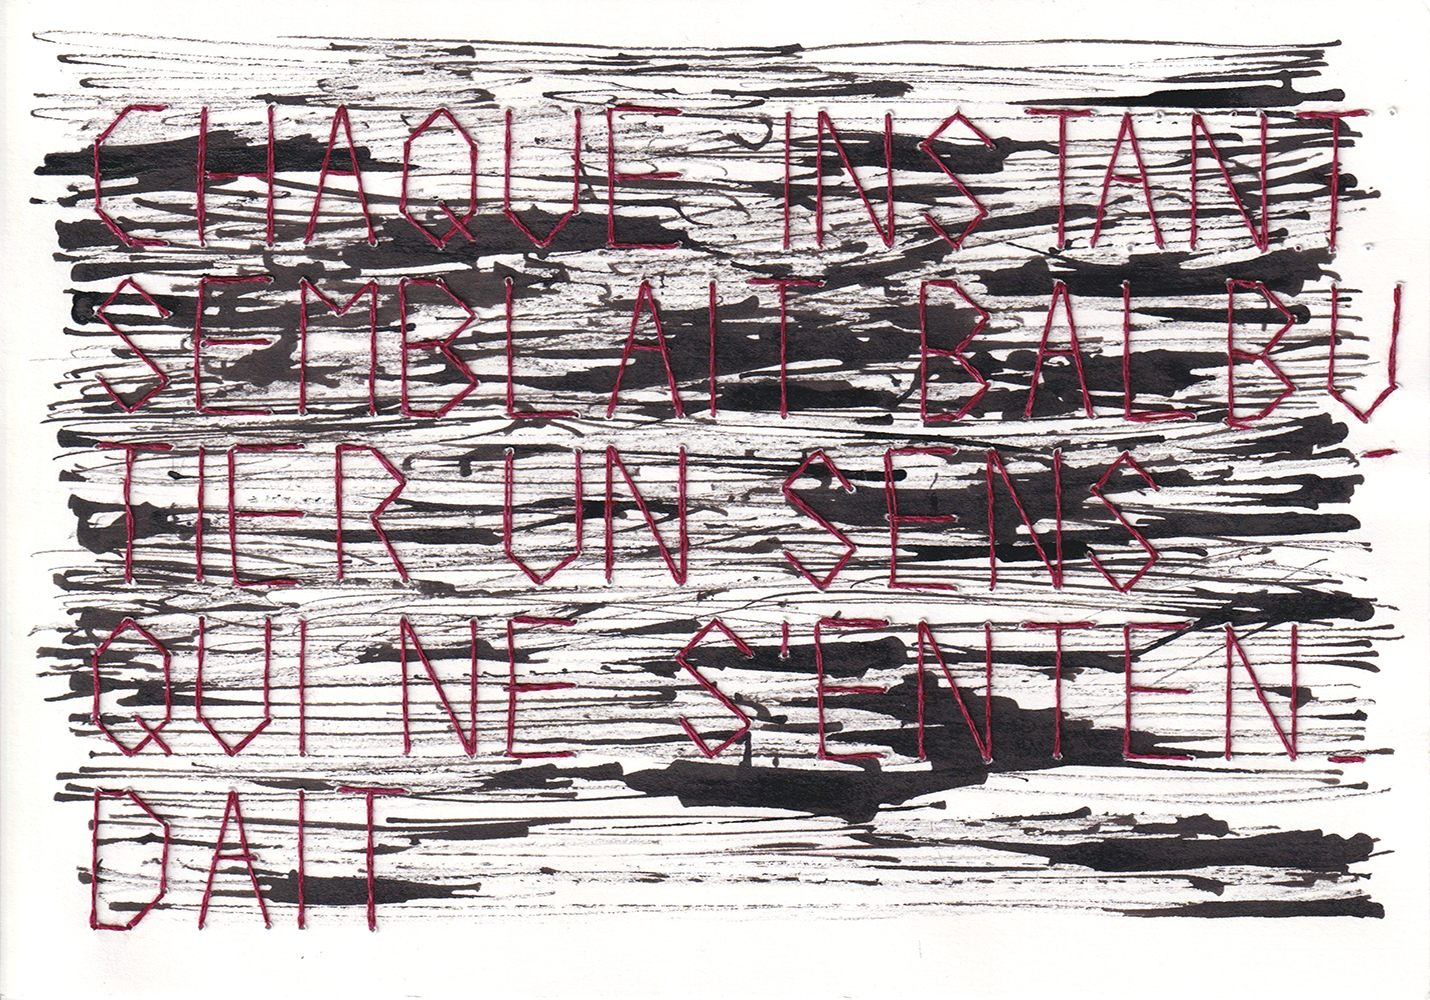 CHAQUE INSTANT
SEMBLAIT BALBU-
TIER UN SENS
QUI NE S'ENTEN-
DAIT